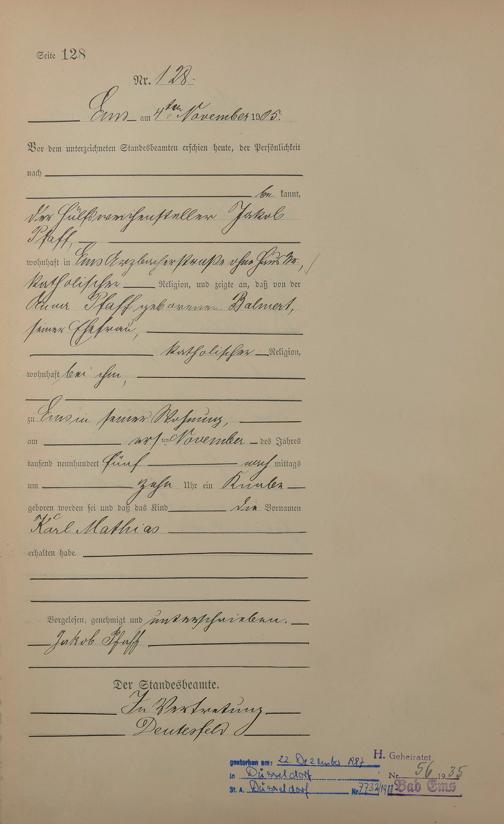 Seite 128
Nr. 128.
Ems am 4ten November 1905.
Vor dem unterzeichneten Standesbeamten erschien heute, der Persönlichkeit
nach
be kannt,
der Hülfsweichensteller Jakob
Pfaff,
wohnhaft in Ems Arzbacherstraße ohne Haus No,
katholischer Religion, und zeigte an, daß von der
Anna Pfaff geborenen Balmert,
seiner Ehefrau,
katholischer Religion,
wohnhaft bei ihm,
zu Ems in seiner Wohnung,
am ersten November des Jahres
tausend neunhundert fünf nach mittags
um zehn Uhr ein Knabe
geboren worden sei und daß das Kind die Vornamen
Karl Mathias
erhalten habe.
Vorgelesen, genehmigt und unterschrieben.
Jakob Pfaff
Der Standesbeamte.
In Vertretung
H. Geheiratet
Nr. 56 1935
Bad Ems
gestorben am: 22 Dezember 1987
in Düsseldorf
St. A. Düsseldorf Nr.